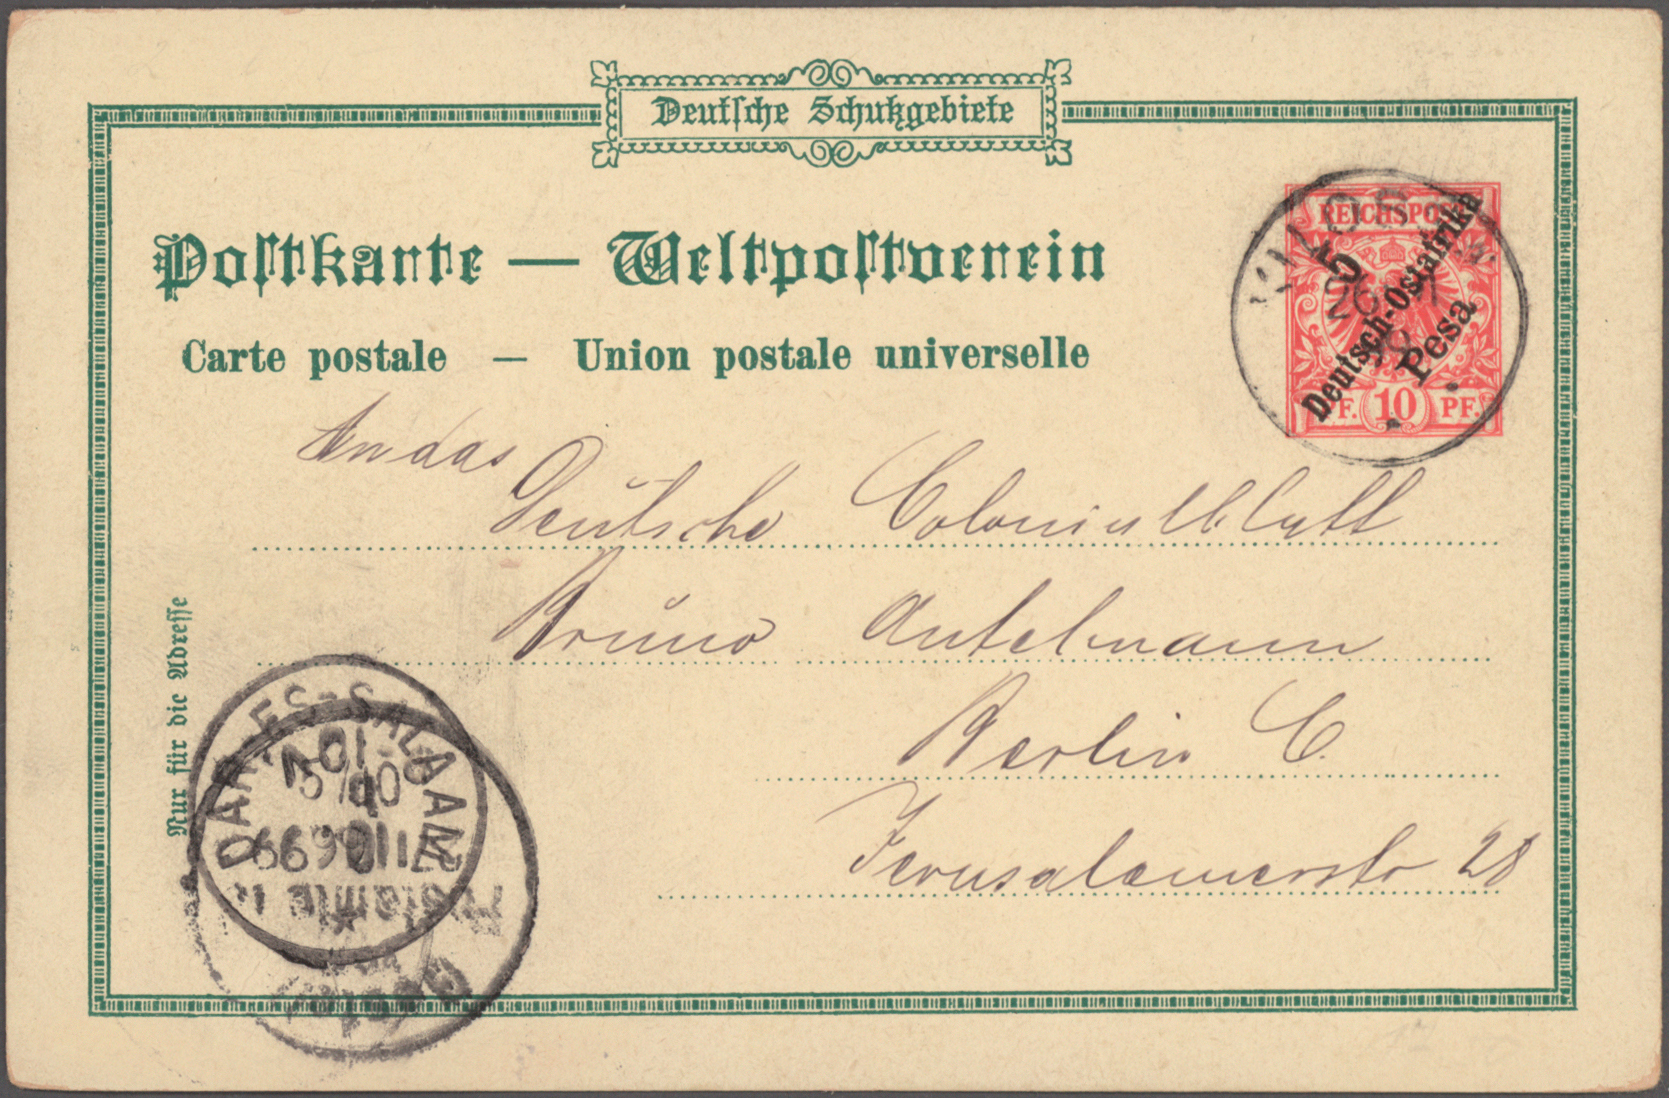 Deutsche Schutzgebiete
Postkarte — Weltpostverein
Carte postale — Union postale universelle
REICHSPOST
5
Deutsch-Ostafrika
Pesa
PF. 10 PF.
KILOSSA
An das
Deutsche Colonialblatt
Bruno Antelmann
Berlin C.
Jerusalemerstr 28
Nur für die Adresse
DAR-ES-SALAAM